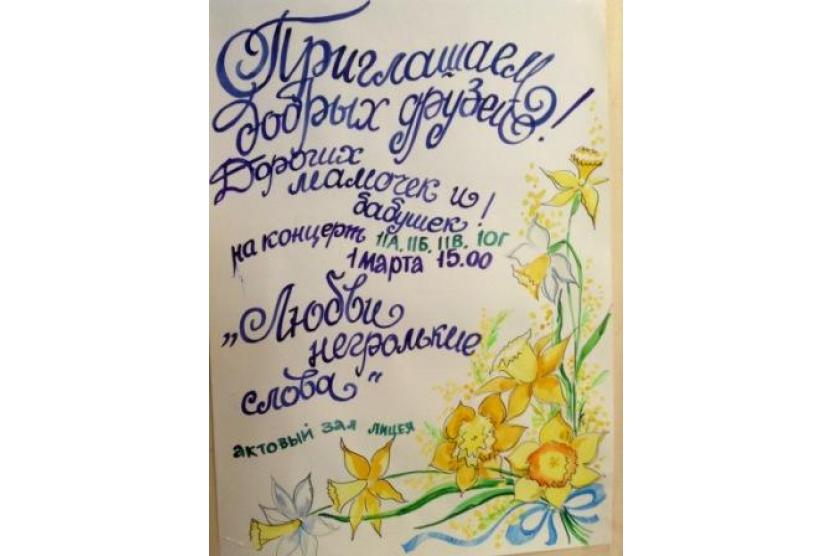 Приглашаем
добрых друзей!
Дорогих
мамочек и
бабушек!
на концерт 11А, 11Б, 11В, 10г
1 марта 15.00
„Любви
негромкие
слова“
актовый зал лицея